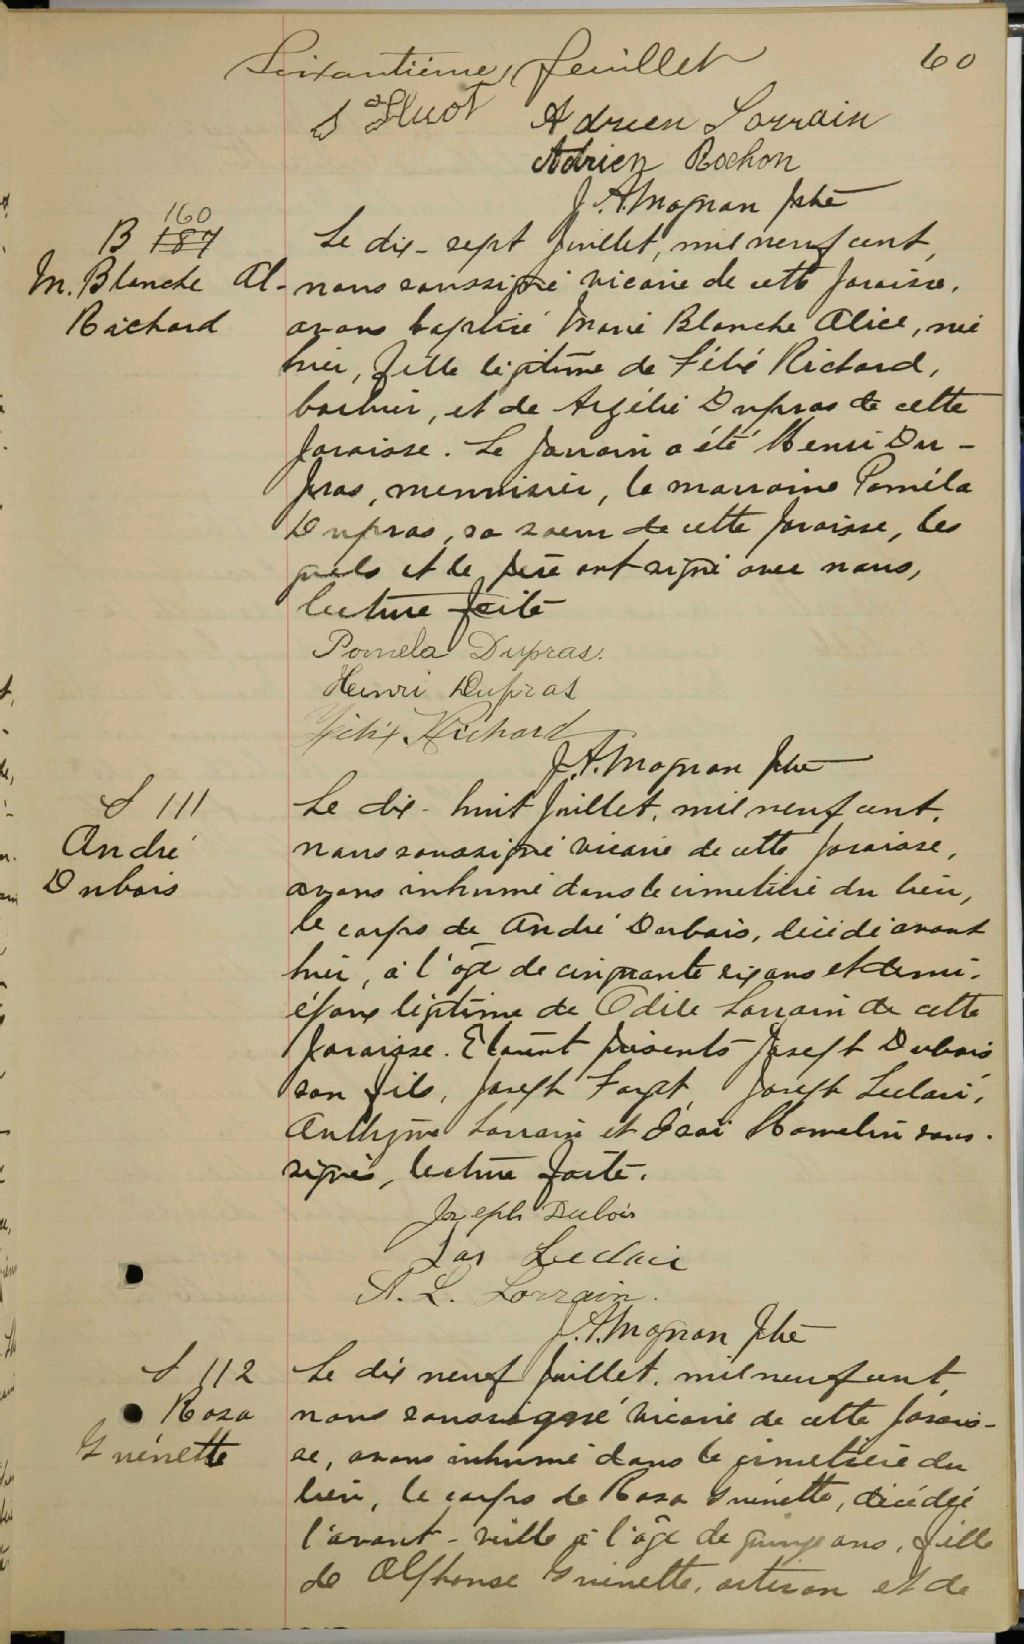 Soixantième feuillet 60
Adrien Lorrain
Adrien Rochon
J. A. Magnan ptre
B 160 187
M. Blanche Al-
Richard
Le dix-sept Juillet, mil neuf cent,
nous soussigné vicaire de cette paroisse,
avons baptisé Marie Blanche Alice, née
hier, fille légitime de Félix Richard,
barbier, et de Argélie Dupras de cette
paroisse. Le parrain a été Henri Du-
pras, menuisier, la marraine Paméla
Dupras, sa soeur de cette paroisse, les
quels et le père ont signé avec nous,
lecture faite
Pomela Dupras.
Henri Dupras
Félix Richard
J. A. Magnan ptre
S 111
André
Dubois
Le dix-huit Juillet, mil neuf cent,
nous soussigné vicaire de cette paroisse,
avons inhumé dans le cimetière du lieu,
le corps de André Dubois, décédé avant
hier, à l'âge de cinquante six ans et demi,
époux légitime de Odile Lorrain de cette
paroisse. Etaient présents Joseph Dubois
son fils, Joseph Forget, Joseph Leclair,
Anthyme Lorrain et Isaï Hamelin sous-
signés, lecture faite.
Joseph Dubois
Jos Leclair
A. L. Lorrain.
J. A. Magnan ptre
S 112
Rosa
Guénette
Le dix neuf Juillet, mil neuf cent,
nous soussigné vicaire de cette parois-
se, avons inhumé dans le cimetière du
lieu, le corps de Rosa Guénette, décédée
l'avant-veille à l'âge de quinze ans, fille
de Alphonse Guénette, artisan et de